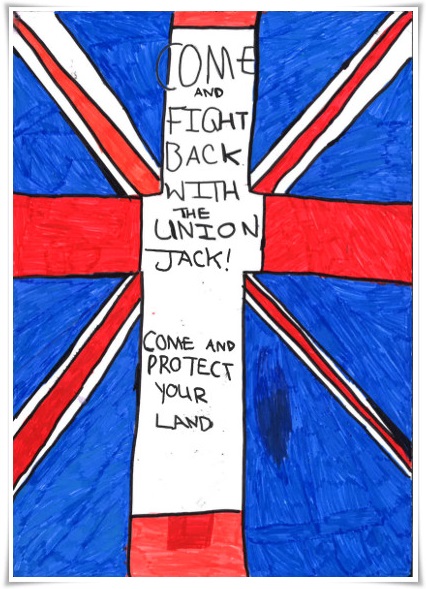 COME
AND
FIGHT
BACK
WITH
THE
UNION
JACK!
COME AND
PROTECT
YOUR
LAND